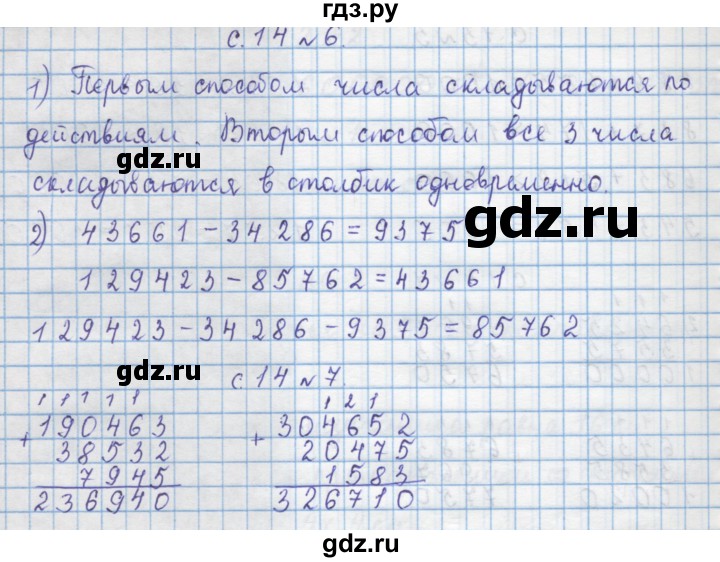 гдз.ру
с. 14 № 6.
1) Первым способом числа складываются по
действиям. Вторым способом все 3 числа
gdz.ru gdz.ru
складываются в столбик одновременно.
2) 43661 - 34286 = 9375
129423 - 85762 = 43661
129423 - 34286 - 9375 = 85762
gdz.ru с. 14 № 7.
1 1 1 1 1 1 2 1
+ 190463 + 304652
38532 20475
7945 1583
236940 326710
gdz.ru gdz.ru
гдз.ру